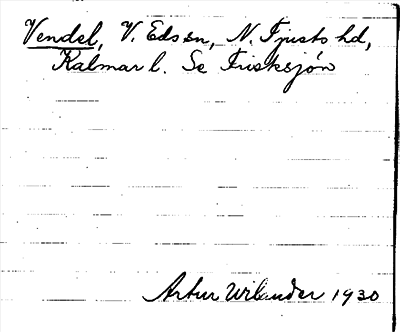 Vendel, V. Eds sn, N. Tjusts hd,
Kalmar l. Se Frisksjön
Artur Wilander 1930